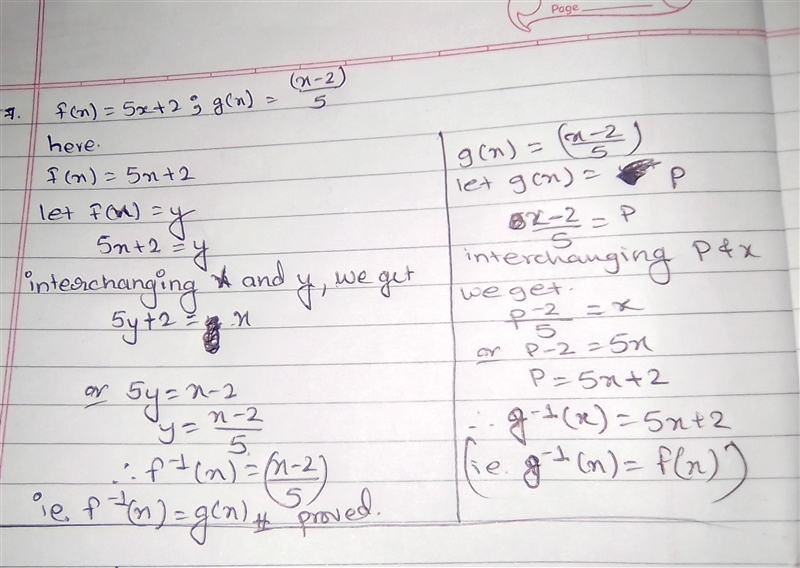 Page
7. f(x) = 5x+2 ; g(x) = (x-2)/5
here.
f(x) = 5x+2
let f(x) = y
5x+2 = y
interchanging x and y, we get
5y+2 = x
or 5y = x-2
y = x-2/5
∴ f⁻¹(x) = (x-2/5)
ie. f⁻¹(x) = g(x) # proved.
g(x) = (x-2/5)
let g(x) = P
x-2/5 = P
interchanging P & x
we get.
P-2/5 = x
or P-2 = 5x
P = 5x+2
∴ g⁻¹(x) = 5x+2
(ie. g⁻¹(x) = f(x))